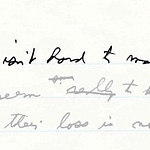 isn't hard to ma
seem really to b
their loss is no